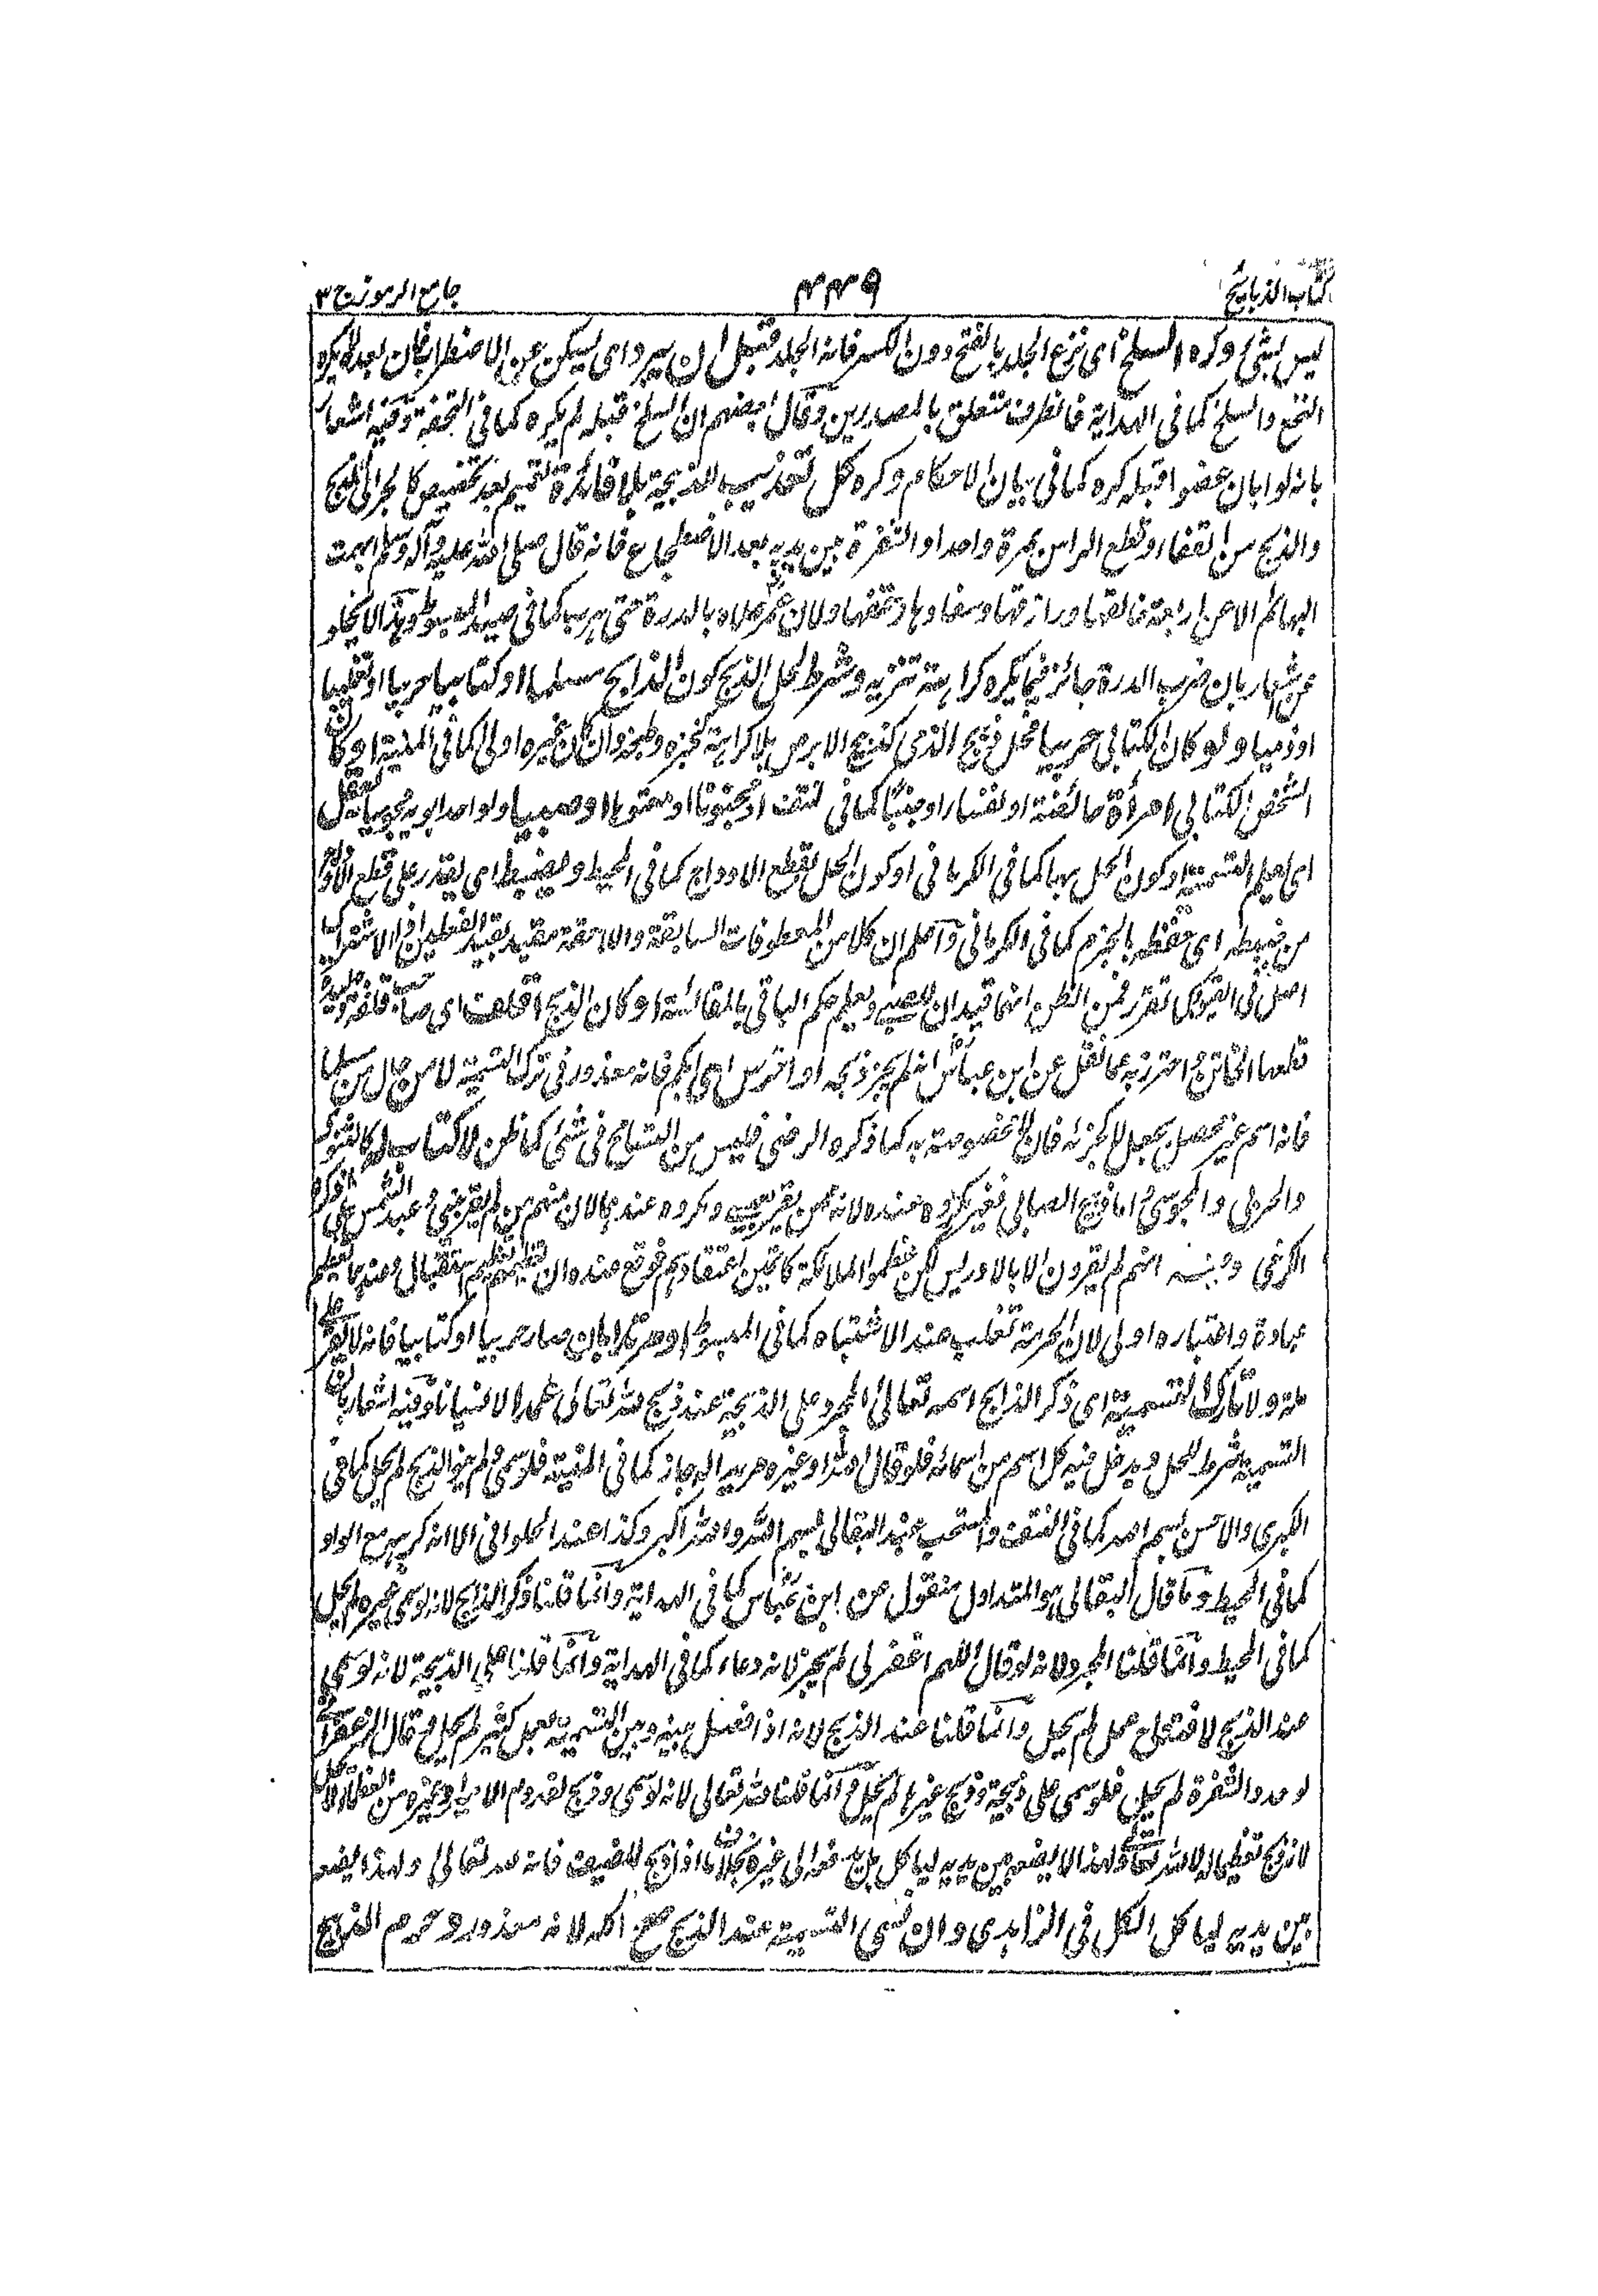 كتاب الذبائح ٤٤٩ جامع الرموز ج ٣
ليس بشئ وكره السلخ اى نزع الجلد بالفتح دون الكسر فانه الجلد قبل ان يبرد اى يسكن عن الاضطراب فان بعده لا يكره
النخع والسلخ كما فى الهداية فالظرف متعلق بالمصدرين وقال بعضهم ان السلخ قبله لم يكره كما فى التحفة وفيه اشعار
بانه لو ابان عضوا قبله كره كما فى بيان الاحكام وكره كل تعذيب للذبيحة بلا فائدة تعميم بعد تخصيص كالجر الى المذبح
والذبح من القفا وقطع الراس بمرة واحدا والشفرة بين يديه بعد الاضطجاع فانه قال صلى الله عليه وآله وسلم ابهمت
البهائم الا عن اربعة خالقها ورازقها وسفادها وحتفها ولان عمر علاه بالدرة حتى هرب كما فى صيد المبسوط وهذا لا يخلو
عن اشعار بان ضرب الدرة جائز فيما يكره كراهة تنزيه وشرط لحل الذبح كون الذابح مسلما او كتابيا حربيا او تغلبيا
او ذميا ولو كان الكتابى حربيا فحل ذبح الذمى كذبح الابرص بلا كراهة كخبزه وطبخه وان كان غيره اولى كما فى المنية او كان
الشخص الكتابى امرأة حائضة او نفساء او جنبا كما فى النتف او مجنونا او معتوها او صبيا ولو احد ابويه مجوسيا يعقل
اى يعلم التسمية او كون الحل بها كما فى الكرمانى او كون الحل بقطع الاوداج كما فى المحيط ويضبط اى يقدر على قطع الاوداج
من ضبطه اى حفظه بالجزم كما فى الكرمانى واعلم ان كلا من المعطوفات السابقة واللاحقة مقيد بقيد الفعلين اذ الاشتراك
اصل فى القيود كما تقرر فمن الظن انهما قيدان للصبى ويعلم حكم الباقى بالمقايسة او كان الذابح اقلف اى صاحب قلفة
قلعها الخاتن احترز به عما نقل عن ابن عباس انه لم يجز ذبحه او اخرس اى ابكم فانه معذور فى ترك التسمية لا من حال من مسلما
فانه اسم غير محصل بجعل لا كجزئه فان لا مخصوصة به كما ذكره الرضى فليس من التسامح فى شئ كما ظن لا كتاب له كالثنوى
والحربى والمجوسى اما ذبح الصابى فغير مكروه عنده لانه ممن يقر بعيسى ومكروه عندهما لان منهم من لم يقر بنبى وعبد الشمس كما ذكره
الكرخى انهم لم يقرون الا بادريس لكن عظموا الملائكة كاتمين اعتقادهم فوقع عنده ان تعظيمهم استقبال وعندهما تعظيم
عبادة واعتباره اولى لان الحرمة تغلب عند الاشتباه كما فى المبسوط او مرتدا بان صار حربيا او كتابيا فانه لا يقر على
ملة ولا تارك التسمية اى ذكر الذابح اسمه تعالى المجرد على الذبيحة عند ذبح لله تعالى عمدا لا نسيانا وفيه اشعار بان
التسمية شرط للحل ويدخل فيه كل اسم من اسمائه فلو قال الله او غيره مريدا له جاز كما فى المنية فلو سمى ولم ينو الذبح لم يحل كما فى
الكبرى والاحسن بسم الله كما فى النتف والمستحب عند البقالى بسم الله والله اكبر وكذا عند الحلوانى الا انه كره مع الواو
كما فى المحيط وما قال البقالى هو المتداول منقول عن ابن عباس كما فى الهداية وانما قلنا ذكر الذابح لانه لو سمى غيره لم يحل
كما فى المحيط وانما قلنا المجرد لانه لو قال اللهم اغفر لى لم يجز لانه دعاء كما فى الهداية وانما قلنا على الذبيحة لانه لو سمى
عند الذبح لافتتاح عمل لم يحل وانما قلنا عند الذبح لانه اذا فصل بينه وبين التسمية بعمل كثير لم يحل وقال الزعفرانى
لو حد الشفرة لم يحل فلو سمى على ذبيحة وذبح غيرها لم يحل وانما قلنا لله تعالى لانه لو سمى وذبح لقدوم الامير او غيره من العظماء لا يحل
لانه ذبح تعظيما له لا لله تعالى ولهذا لا يضعه بين يديه لياكل بل يدفعه الى غيره بخلاف ما اذا ذبح للضيف فانه لله تعالى ولهذا يضعه
بين يديه لياكل الكل فى الزاهدى وان نسى التسمية عند الذبح صح اكله لانه معذور وحرم الذبيح